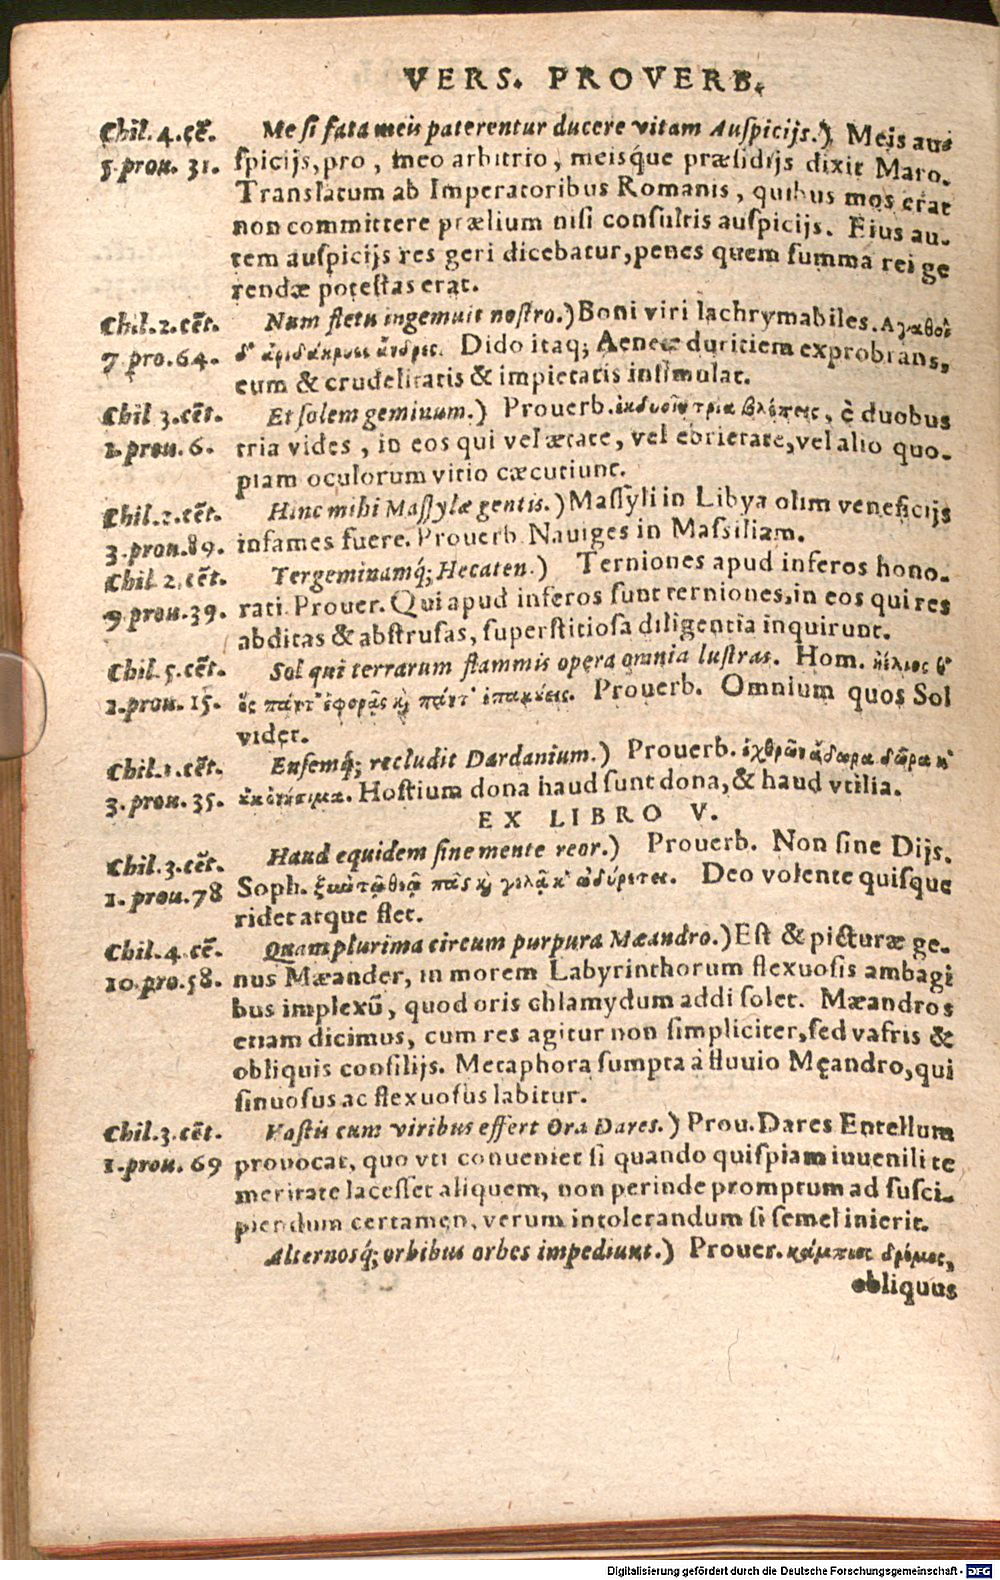 VERS. PROVERB.
Chil. 4. cẽt. Me si fata meis paterentur ducere vitam Auspicijs.) Meis au
5. prou. 31. spicijs, pro, meo arbitrio, meisque præsidijs dixit Maro.
Translatum ab Imperatoribus Romanis, quibus mos erat
non committere prælium nisi consultis auspicijs. Eius au-
tem auspicijs res geri dicebatur, penes quem summa rei ge
rendæ potestas erat.
Chil. 2. cẽt. Num fletu ingemuit nostro.) Boni viri lachrymabiles. Αγαθοὶ
7. pro. 64. δ' ἀριδάκρυες ἄνδρες. Dido itaq; Aeneæ duritiem exprobrans,
eum & crudelitatis & impietatis insimulat.
Chil 3. cẽt. Et solem geminum.) Prouerb. ἐκ δυοῖν τρία βλέπεις, è duobus
2. prou. 6. tria vides, in eos qui vel ætate, vel ebrietate, vel alio quo-
piam oculorum vitio cæcutiunt.
Chil. 2. cẽt. Hinc mihi Massylæ gentis.) Massyli in Libya olim veneficijs
3. prou. 89. infames fuere. Prouerb. Nauiges in Massiliam.
Chil 2. cẽt. Tergeminamq́; Hecaten.) Terniones apud inferos hono-
9. prou. 39. rati. Prouer. Qui apud inferos sunt terniones, in eos qui res
abditas & abstrusas, superstitiosa diligentia inquirunt.
Chil. 5. cẽt. Sol qui terrarum flammis opera omnia lustras. Hom. ἠέλιος θ'
2. prou. 15. ὃς πάντ' ἐφορᾷς καὶ πάντ' ἐπακούεις. Prouerb. Omnium quos Sol
videt.
Chil. 1. cẽt. Ensemq́; recludit Dardanium.) Prouerb. ἐχθρῶν ἄδωρα δῶρα κ'
3. prou. 35. οὐκ ὀνήσιμα. Hostium dona haud sunt dona, & haud vtilia.
EX LIBRO V.
Chil. 3. cẽt. Haud equidem sine mente reor.) Prouerb. Non sine Dijs.
1. prou. 78 Soph. Deo volente quisque
ridet atque flet.
Chil. 4. cẽ. Quam plurima circum purpura Mæandro.) Est & picturæ ge-
10. pro. 58. nus Mæander, in morem Labyrinthorum flexuosis ambagi
bus implexũ, quod oris chlamydum addi solet. Mæandros
etiam dicimus, cum res agitur non simpliciter, sed vafris &
obliquis consilijs. Metaphora sumpta à fluuio Męandro, qui
sinuosus ac flexuosus labitur.
Chil. 3. cẽt. Vastis cum viribus effert Ora Dares.) Prou. Dares Entellum
1. prou. 69 prouocat, quo vti conueniet si quando quispiam iuuenili te
meritate lacesset aliquem, non perinde promptum ad susci-
piendum certamen, verum intolerandum si semel inierit.
Alternosq́; orbibus orbes impediunt.) Prouer. κάμπτειν δρόμος,
obliquus
Digitalisierung gefördert durch die Deutsche Forschungsgemeinschaft - DFG